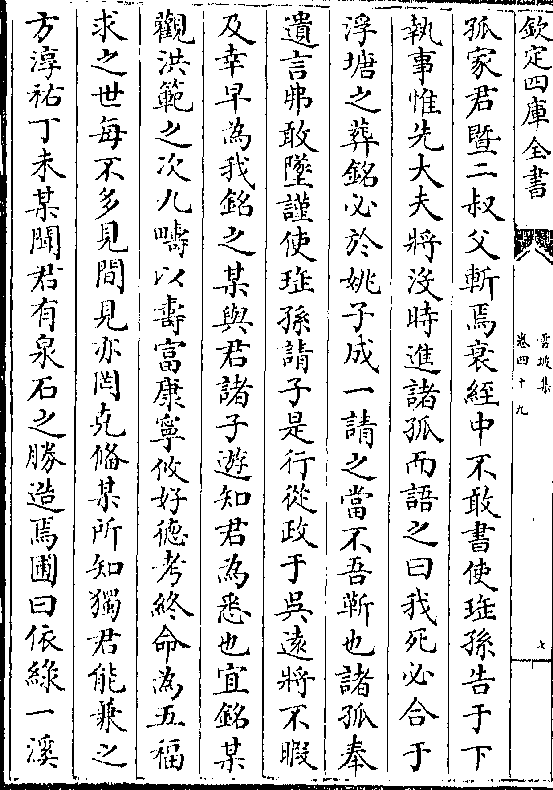 欽定四庫全書
雪坡集
卷四十九
七
孤家君曁二叔父斬焉衰絰中不敢書使琟孫告于下
執事惟先大夫將没時進諸孤而語之曰我死必合于
浮塘之葬銘必於姚子成一請之當不吾靳也諸孤奉
遺言弗敢墜謹使琟孫請子是行從政于吳遠將不暇
及幸早為我銘之某與君諸子遊知君為悉也宜銘某
觀洪範之次九疇以壽富康寧攸好徳考終命為五福
求之世每不多見間見亦罔克備某所知獨君能兼之
方淳祐丁未某聞君有泉石之勝造焉圃曰依緑一溪